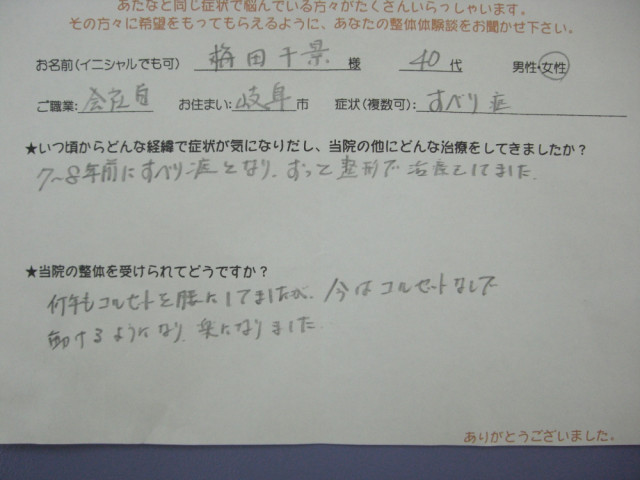 あたなと同じ症状で悩んでいる方々がたくさんいらっしゃいます。
その方々に希望をもってもらえるように、あなたの整体体験談をお聞かせ下さい。
お名前(イニシャルでも可) 梅田千景 様 40代 男性・女性
ご職業: 会社員 お住まい: 岐阜市 症状(複数可): すべり症
★いつ頃からどんな経緯で症状が気になりだし、当院の他にどんな治療をしてきましたか?
7~8年前にすべり症となり、ずって整形で治療をしてました。
★当院の整体を受けられてどうですか?
何年もコルセットを腰にしてましたが、今はコルセットなしで
動けるようになり、楽になりました。
ありがとうございました。